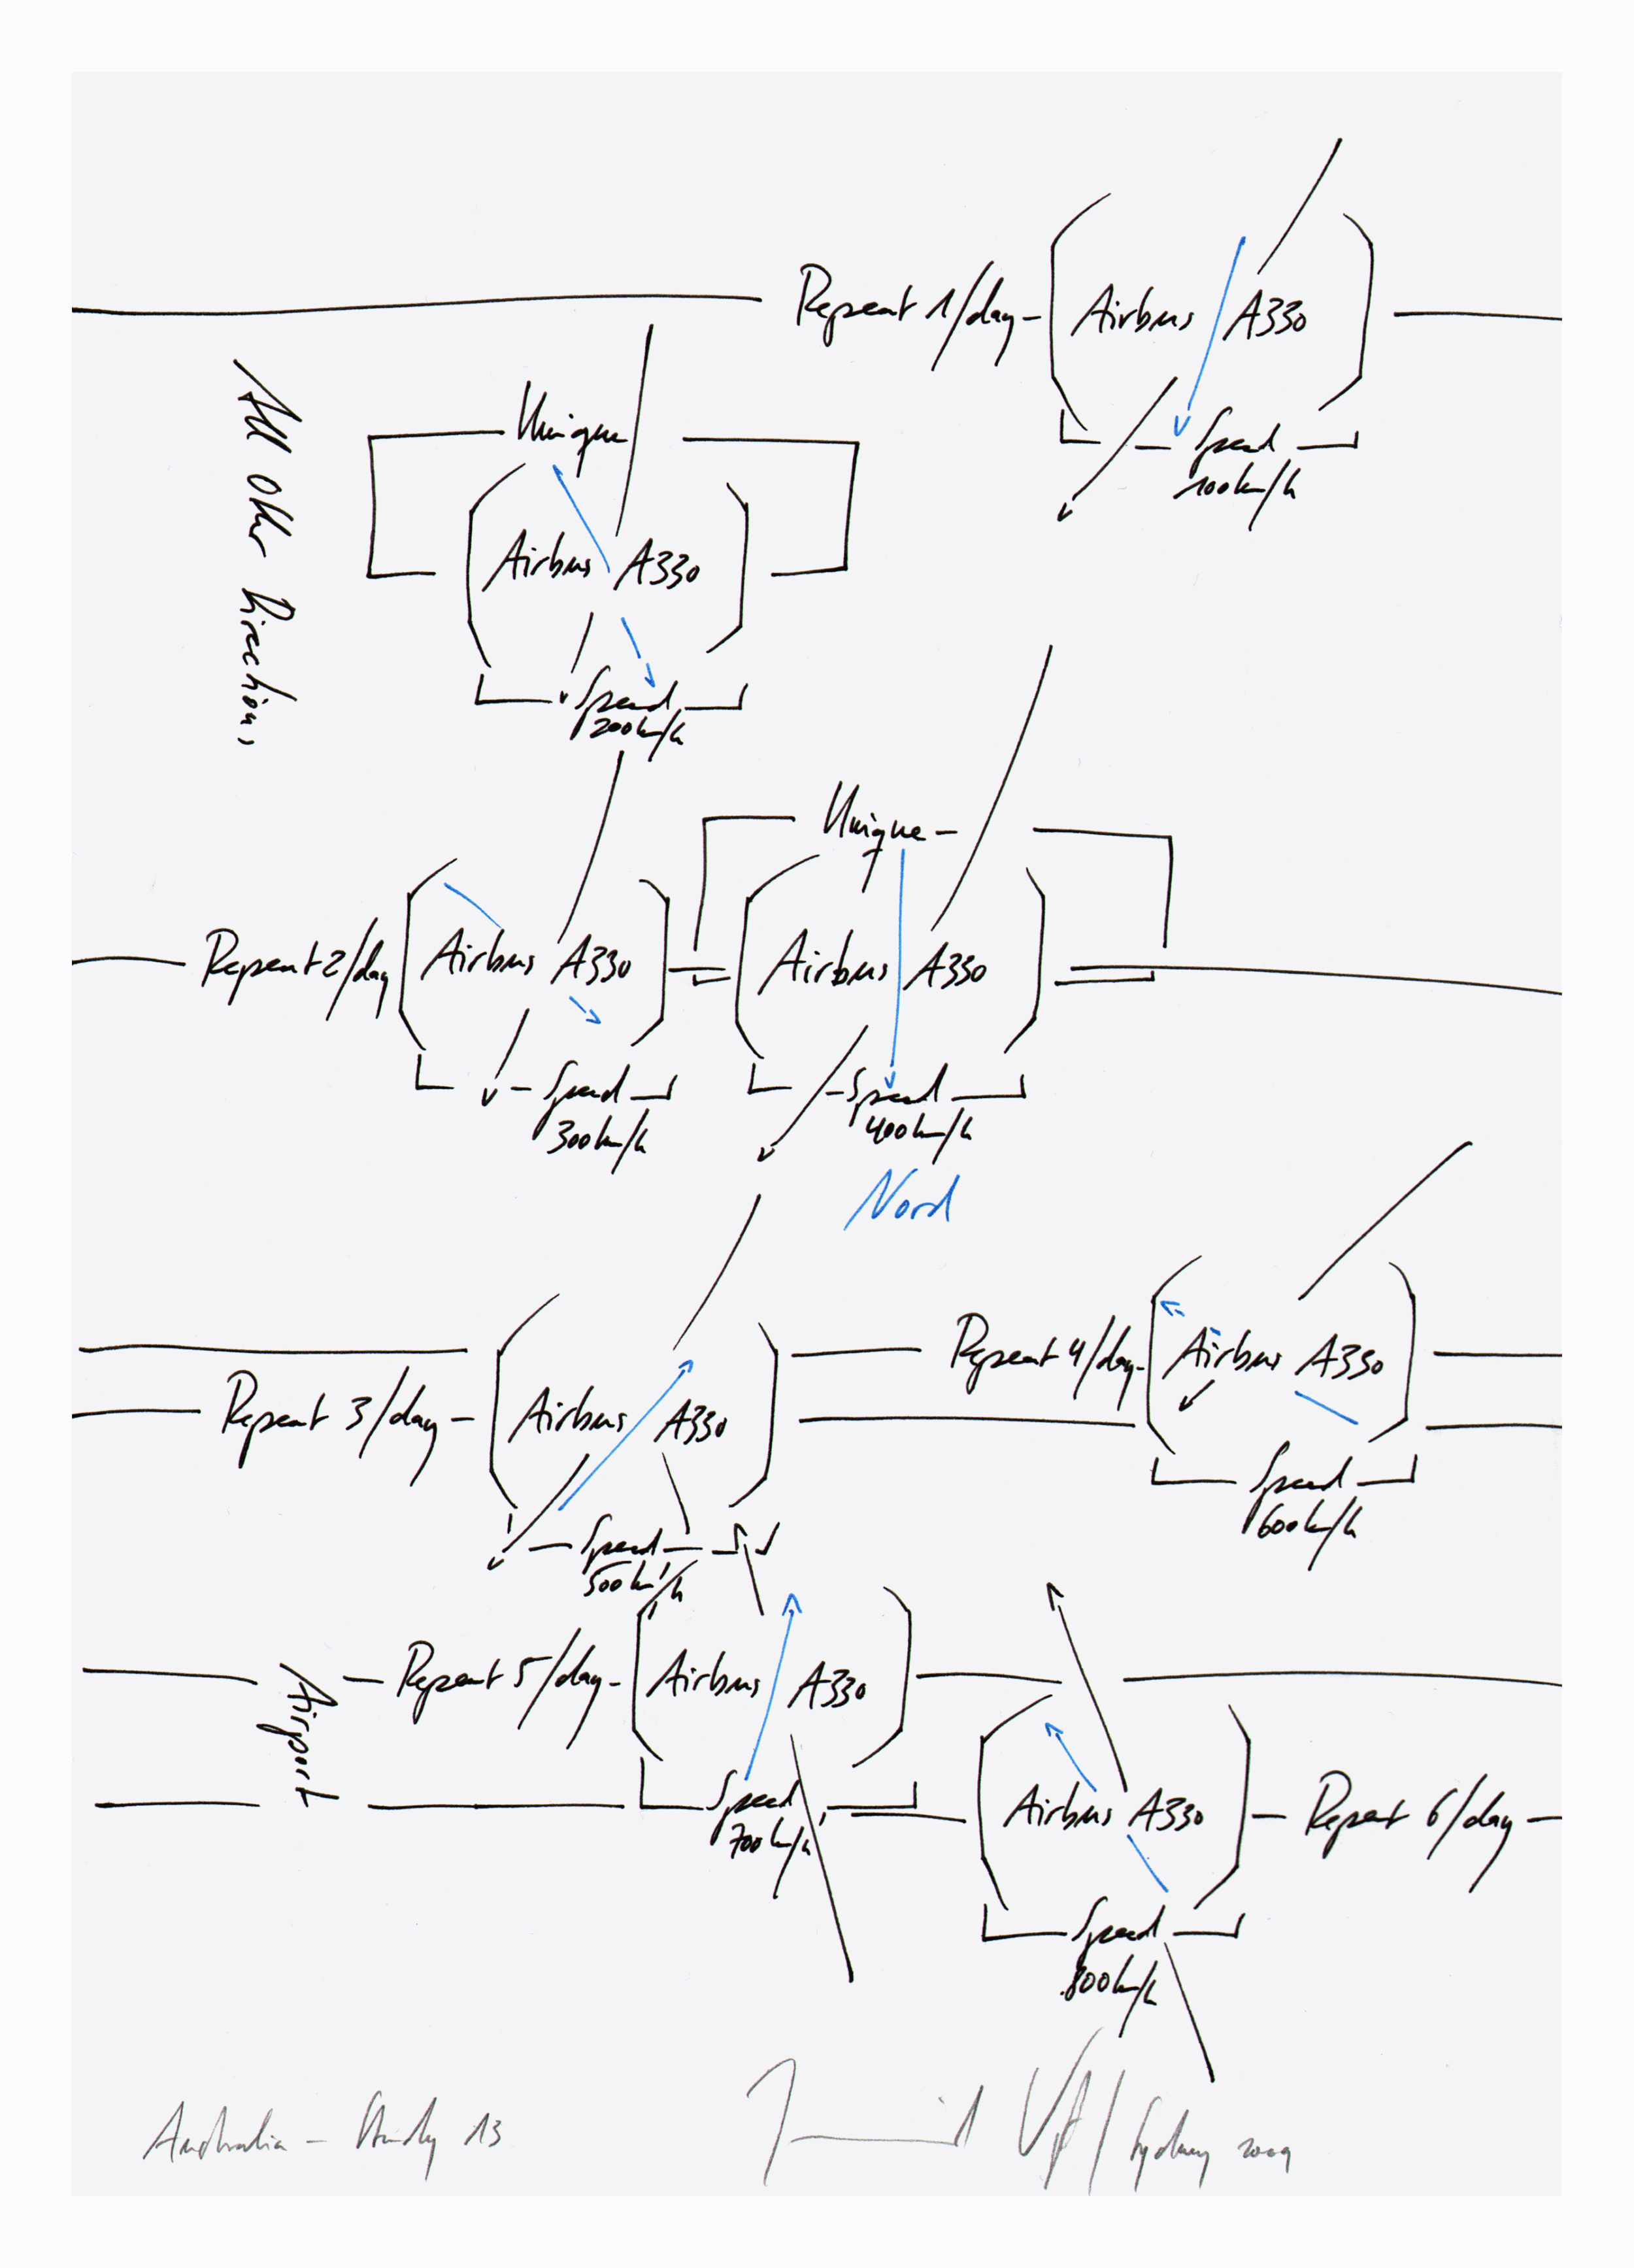 Repeat 1/day - Airbus A330
Speed
100km/h
All Other Directions
Unique
Airbus A330
Speed
200km/h
Unique -
Repeat 2/day Airbus A330
Airbus A330
Speed
300km/h
Speed
400km/h
Nord
Repeat 4/day - Airbus A330
Repeat 3/day - Airbus A330
Speed
600km/h
Speed
500km/h
Repeat 5/day - Airbus A330
Airport
Speed
700km/h
Airbus A330 - Repeat 6/day -
Speed
800km/h
Australia - Study 13
Sydney 2009